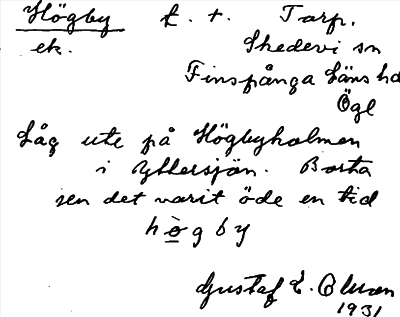 Högby f. t. Torp.
ek. Skedevi sn
Finspånga Läns hd
Ögl
Låg ute på Högbyholmen
i Yttersjön. Borta
sen det varit öde en tid
högby
Gustaf E. Olman
1931